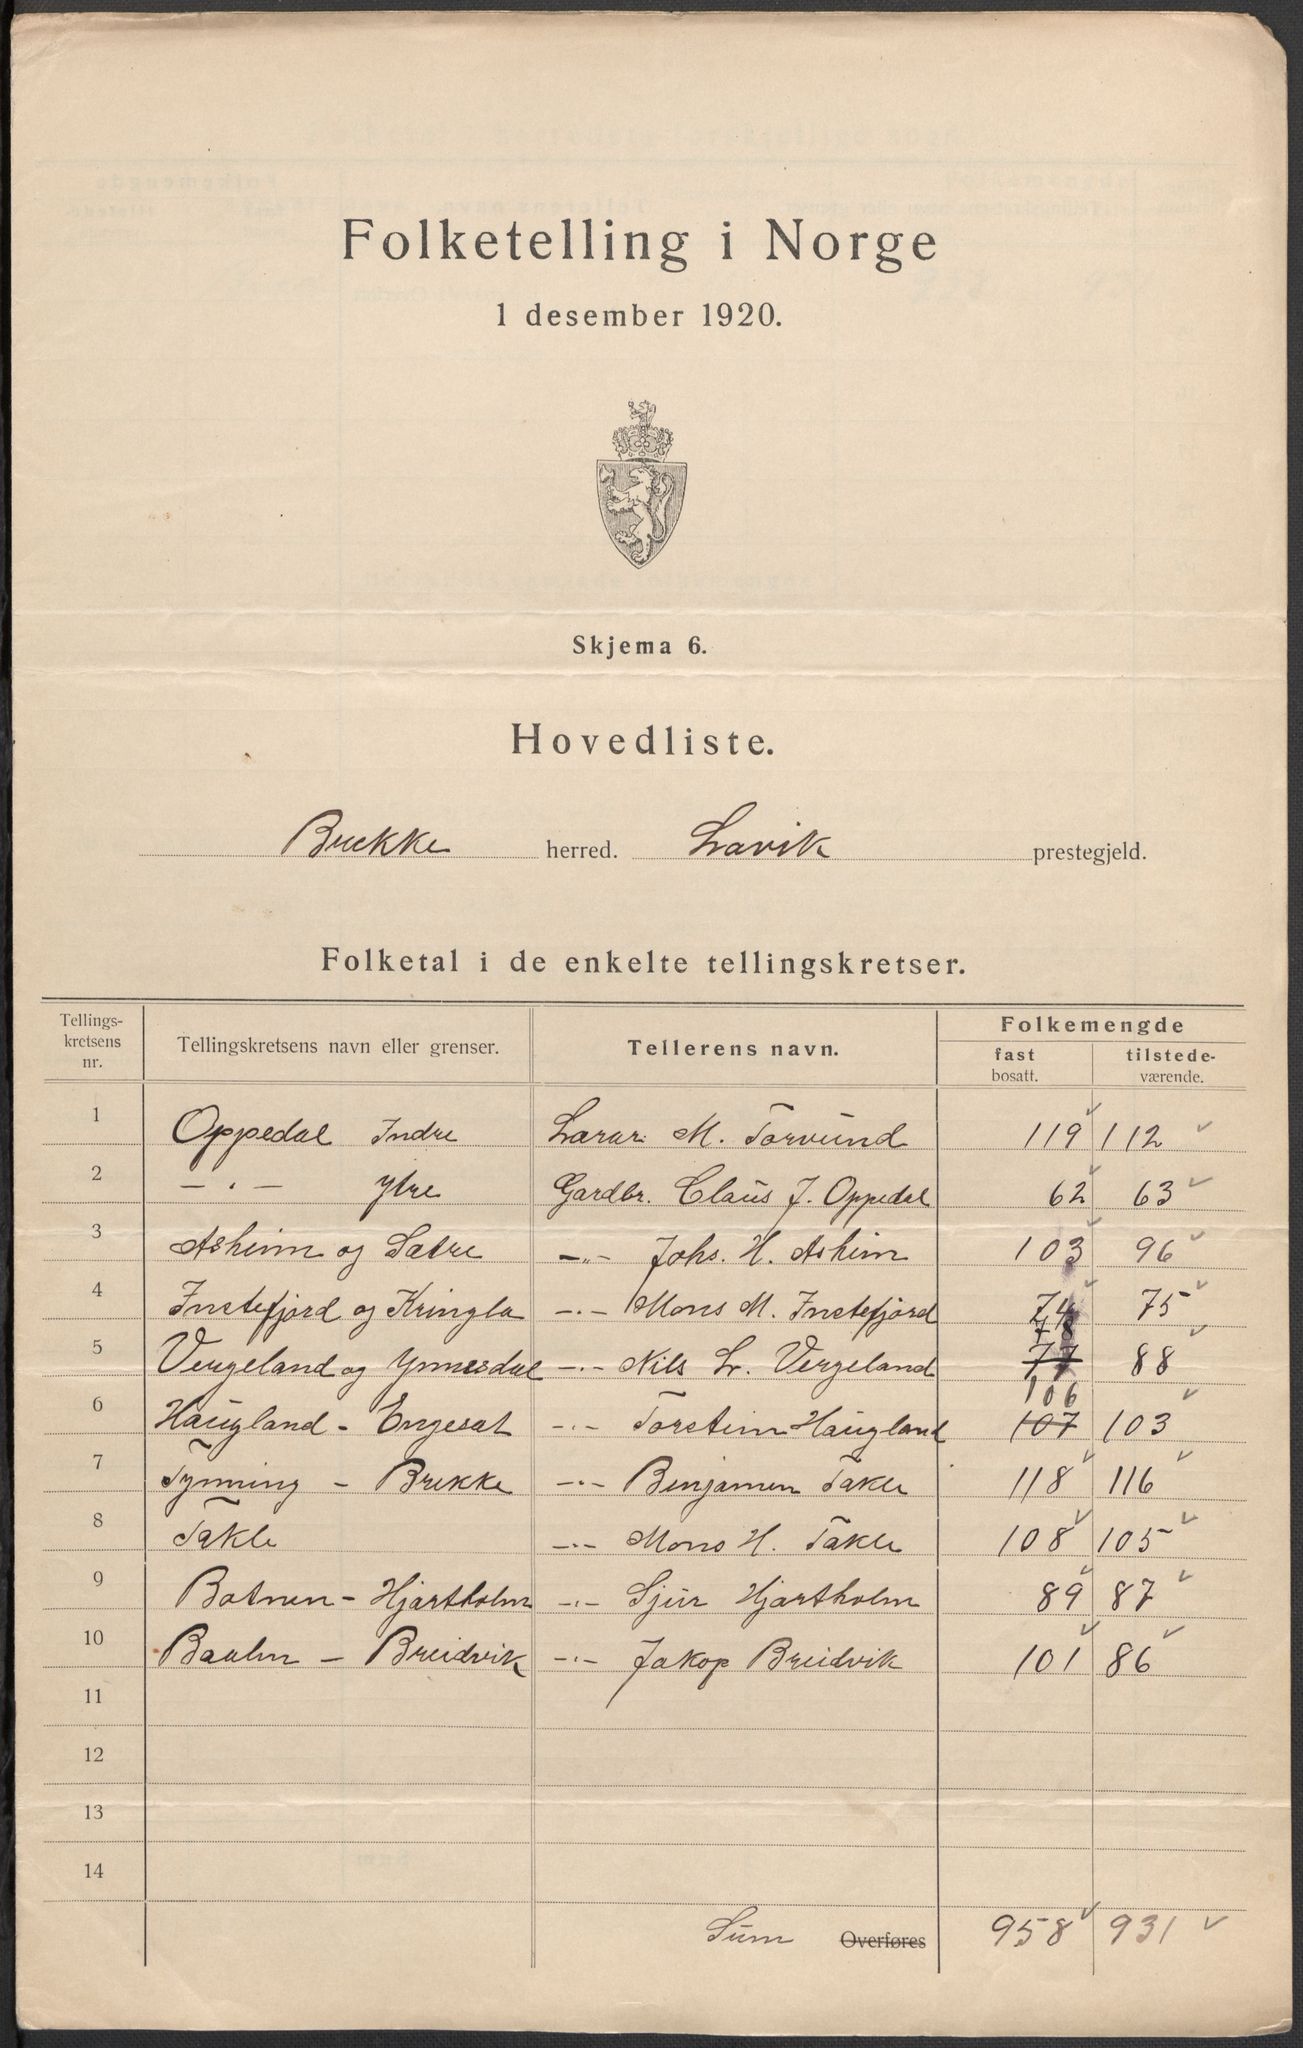 Folketelling i Norge
1 desember 1920.
Skjema 6.
Hovedliste.
Brekke herred. Lavik prestegjeld.
Folketal i de enkelte tellingskretser.
Tellings-kretsens nr. Tellingskretsens navn eller grenser. Tellerens navn. Folkemengde
fast bosatt. tilstede-værende.
1 Oppedal Indre Lærar M. Torvund 119 112
2 -"- Ytre Gardbr. Claus J. Oppedal 62 63
3 Asheim og Sætre -"- Johs. H. Asheim 103 96
4 Instefjord og Kringla -"- Mons M. Instefjord 74 75
78
5 Vergeland og Ynnesdal -"- Nils L. Vergeland 77 88
106
6 Haugland - Engesæt -"- Torstein Haugland 107 103
7 Tynning - Brekke -"- Benjamen Takle 118 116
8 Takle -"- Mons H. Takle 108 105
9 Botnen - Hjartholm -"- Sjur Hjartholm 89 87
10 - Breidvik -"- Jakop Breidvik 101 86
11
12
13
14
Sum Overføres 958 931